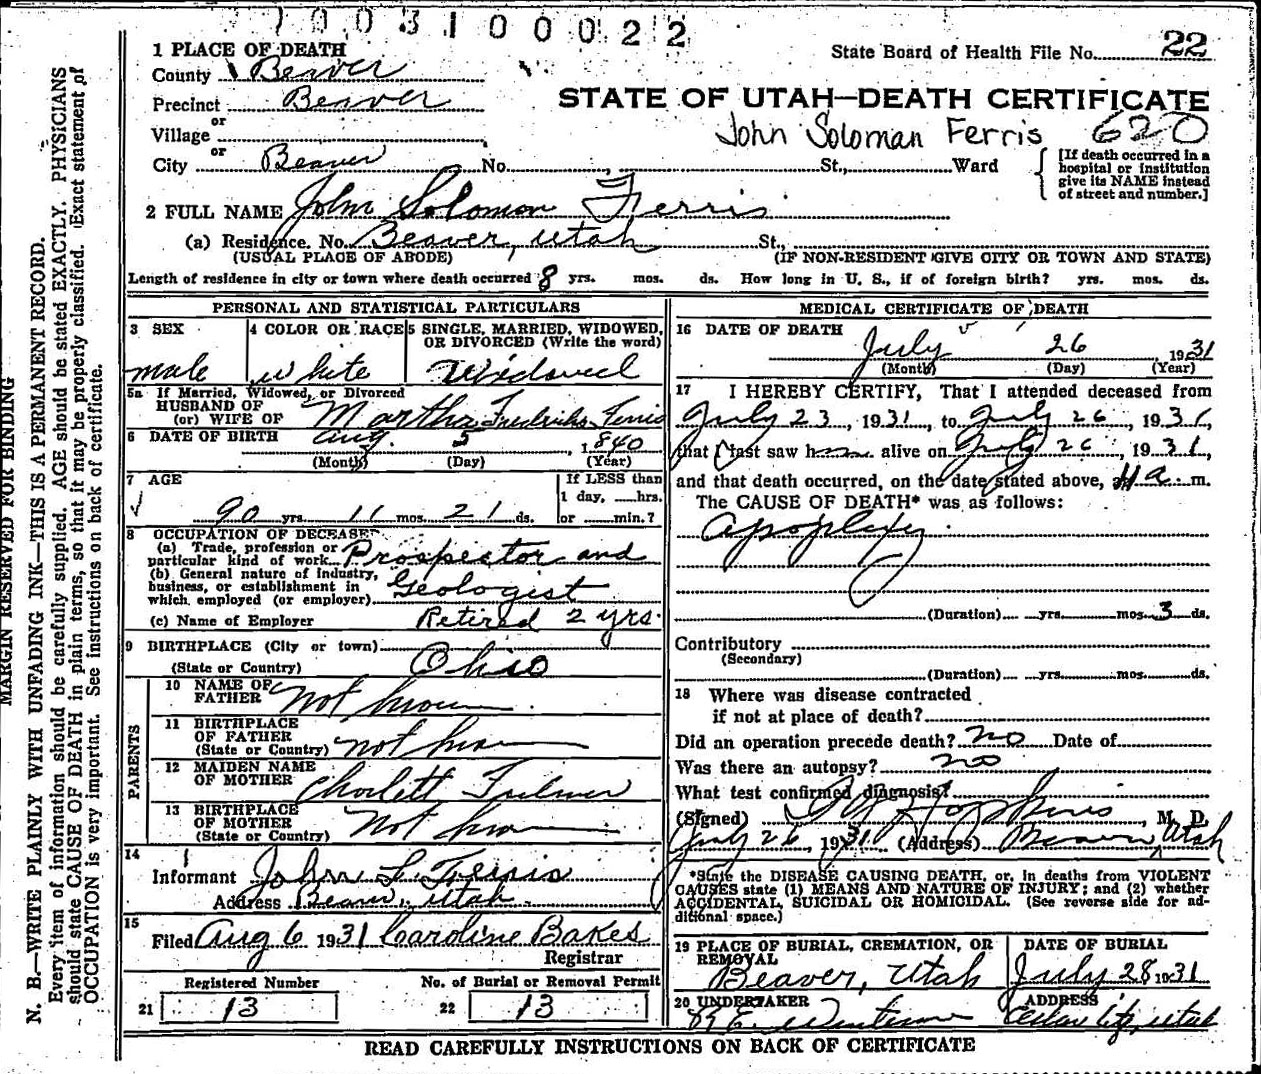 7003100022
1 PLACE OF DEATH
State Board of Health File No. 22
County Beaver
Precinct Beaver
STATE OF UTAH—DEATH CERTIFICATE
or
Village
John Soloman Ferris 620
or
City Beaver No. St., Ward
[If death occurred in a
hospital or institution
give its NAME instead
of street and number.]
2 FULL NAME John Solomon Ferris
(a) Residence. No. Beaver, Utah St.,
(USUAL PLACE OF ABODE) (IF NON-RESIDENT GIVE CITY OR TOWN AND STATE)
Length of residence in city or town where death occurred 8 yrs. mos. ds. How long in U. S., if of foreign birth? yrs. mos. ds.
PERSONAL AND STATISTICAL PARTICULARS
3 SEX
male
4 COLOR OR RACE
white
5 SINGLE, MARRIED, WIDOWED,
OR DIVORCED (Write the word)
Widowed
5a If Married, Widowed, or Divorced
HUSBAND OF
(or) WIFE OF Martha Fredericks Ferris
6 DATE OF BIRTH Aug. 5, 1840
(Month) (Day) (Year)
7 AGE
90 yrs. 11 mos. 21 ds.
If LESS than
1 day, hrs.
or min.?
8 OCCUPATION OF DECEASED
(a) Trade, profession or
particular kind of work Prospector and
(b) General nature of industry,
business, or establishment in
which employed (or employer) Geologist
(c) Name of Employer Retired 2 yrs.
9 BIRTHPLACE (City or town)
(State or Country) Ohio
PARENTS
10 NAME OF
FATHER Not known
11 BIRTHPLACE
OF FATHER
(State or Country) not known
12 MAIDEN NAME
OF MOTHER Charlett Fulmer
13 BIRTHPLACE
OF MOTHER
(State or Country) Not known
14
Informant John L. Ferris
Address Beaver, Utah
15
Filed Aug 6 1931 Caroline Bakes
Registrar
Registered Number
21 13
No. of Burial or Removal Permit
22 13
MEDICAL CERTIFICATE OF DEATH
16 DATE OF DEATH
July 26, 1931
(Month) (Day) (Year)
17 I HEREBY CERTIFY, That I attended deceased from
July 23, 1931, to July 26, 1931,
that I last saw h alive on July 26, 1931,
and that death occurred, on the date stated above, at a. m.
The CAUSE OF DEATH* was as follows:
apoplexy
(Duration) yrs. mos. 3 ds.
Contributory
(Secondary)
(Duration) yrs. mos. ds.
18 Where was disease contracted
if not at place of death?
Did an operation precede death? no Date of
Was there an autopsy? no
What test confirmed diagnosis?
(Signed) Hopkins, M. D.
July 26, 1931 (Address) Beaver, Utah
*State the DISEASE CAUSING DEATH, or, in deaths from VIOLENT
CAUSES state (1) MEANS AND NATURE OF INJURY; and (2) whether
ACCIDENTAL, SUICIDAL OR HOMICIDAL. (See reverse side for ad-
ditional space.)
19 PLACE OF BURIAL, CREMATION, OR
REMOVAL
Beaver, Utah
DATE OF BURIAL
July 28 1931
20 UNDERTAKER
ADDRESS
Cedar City, Utah
READ CAREFULLY INSTRUCTIONS ON BACK OF CERTIFICATE
MARGIN RESERVED FOR BINDING
N. B.—WRITE PLAINLY WITH UNFADING INK—THIS IS A PERMANENT RECORD.
Every item of information should be carefully supplied. AGE should be stated EXACTLY. PHYSICIANS
should state CAUSE OF DEATH in plain terms, so that it may be properly classified. Exact statement of
OCCUPATION is very important. See instructions on back of certificate.